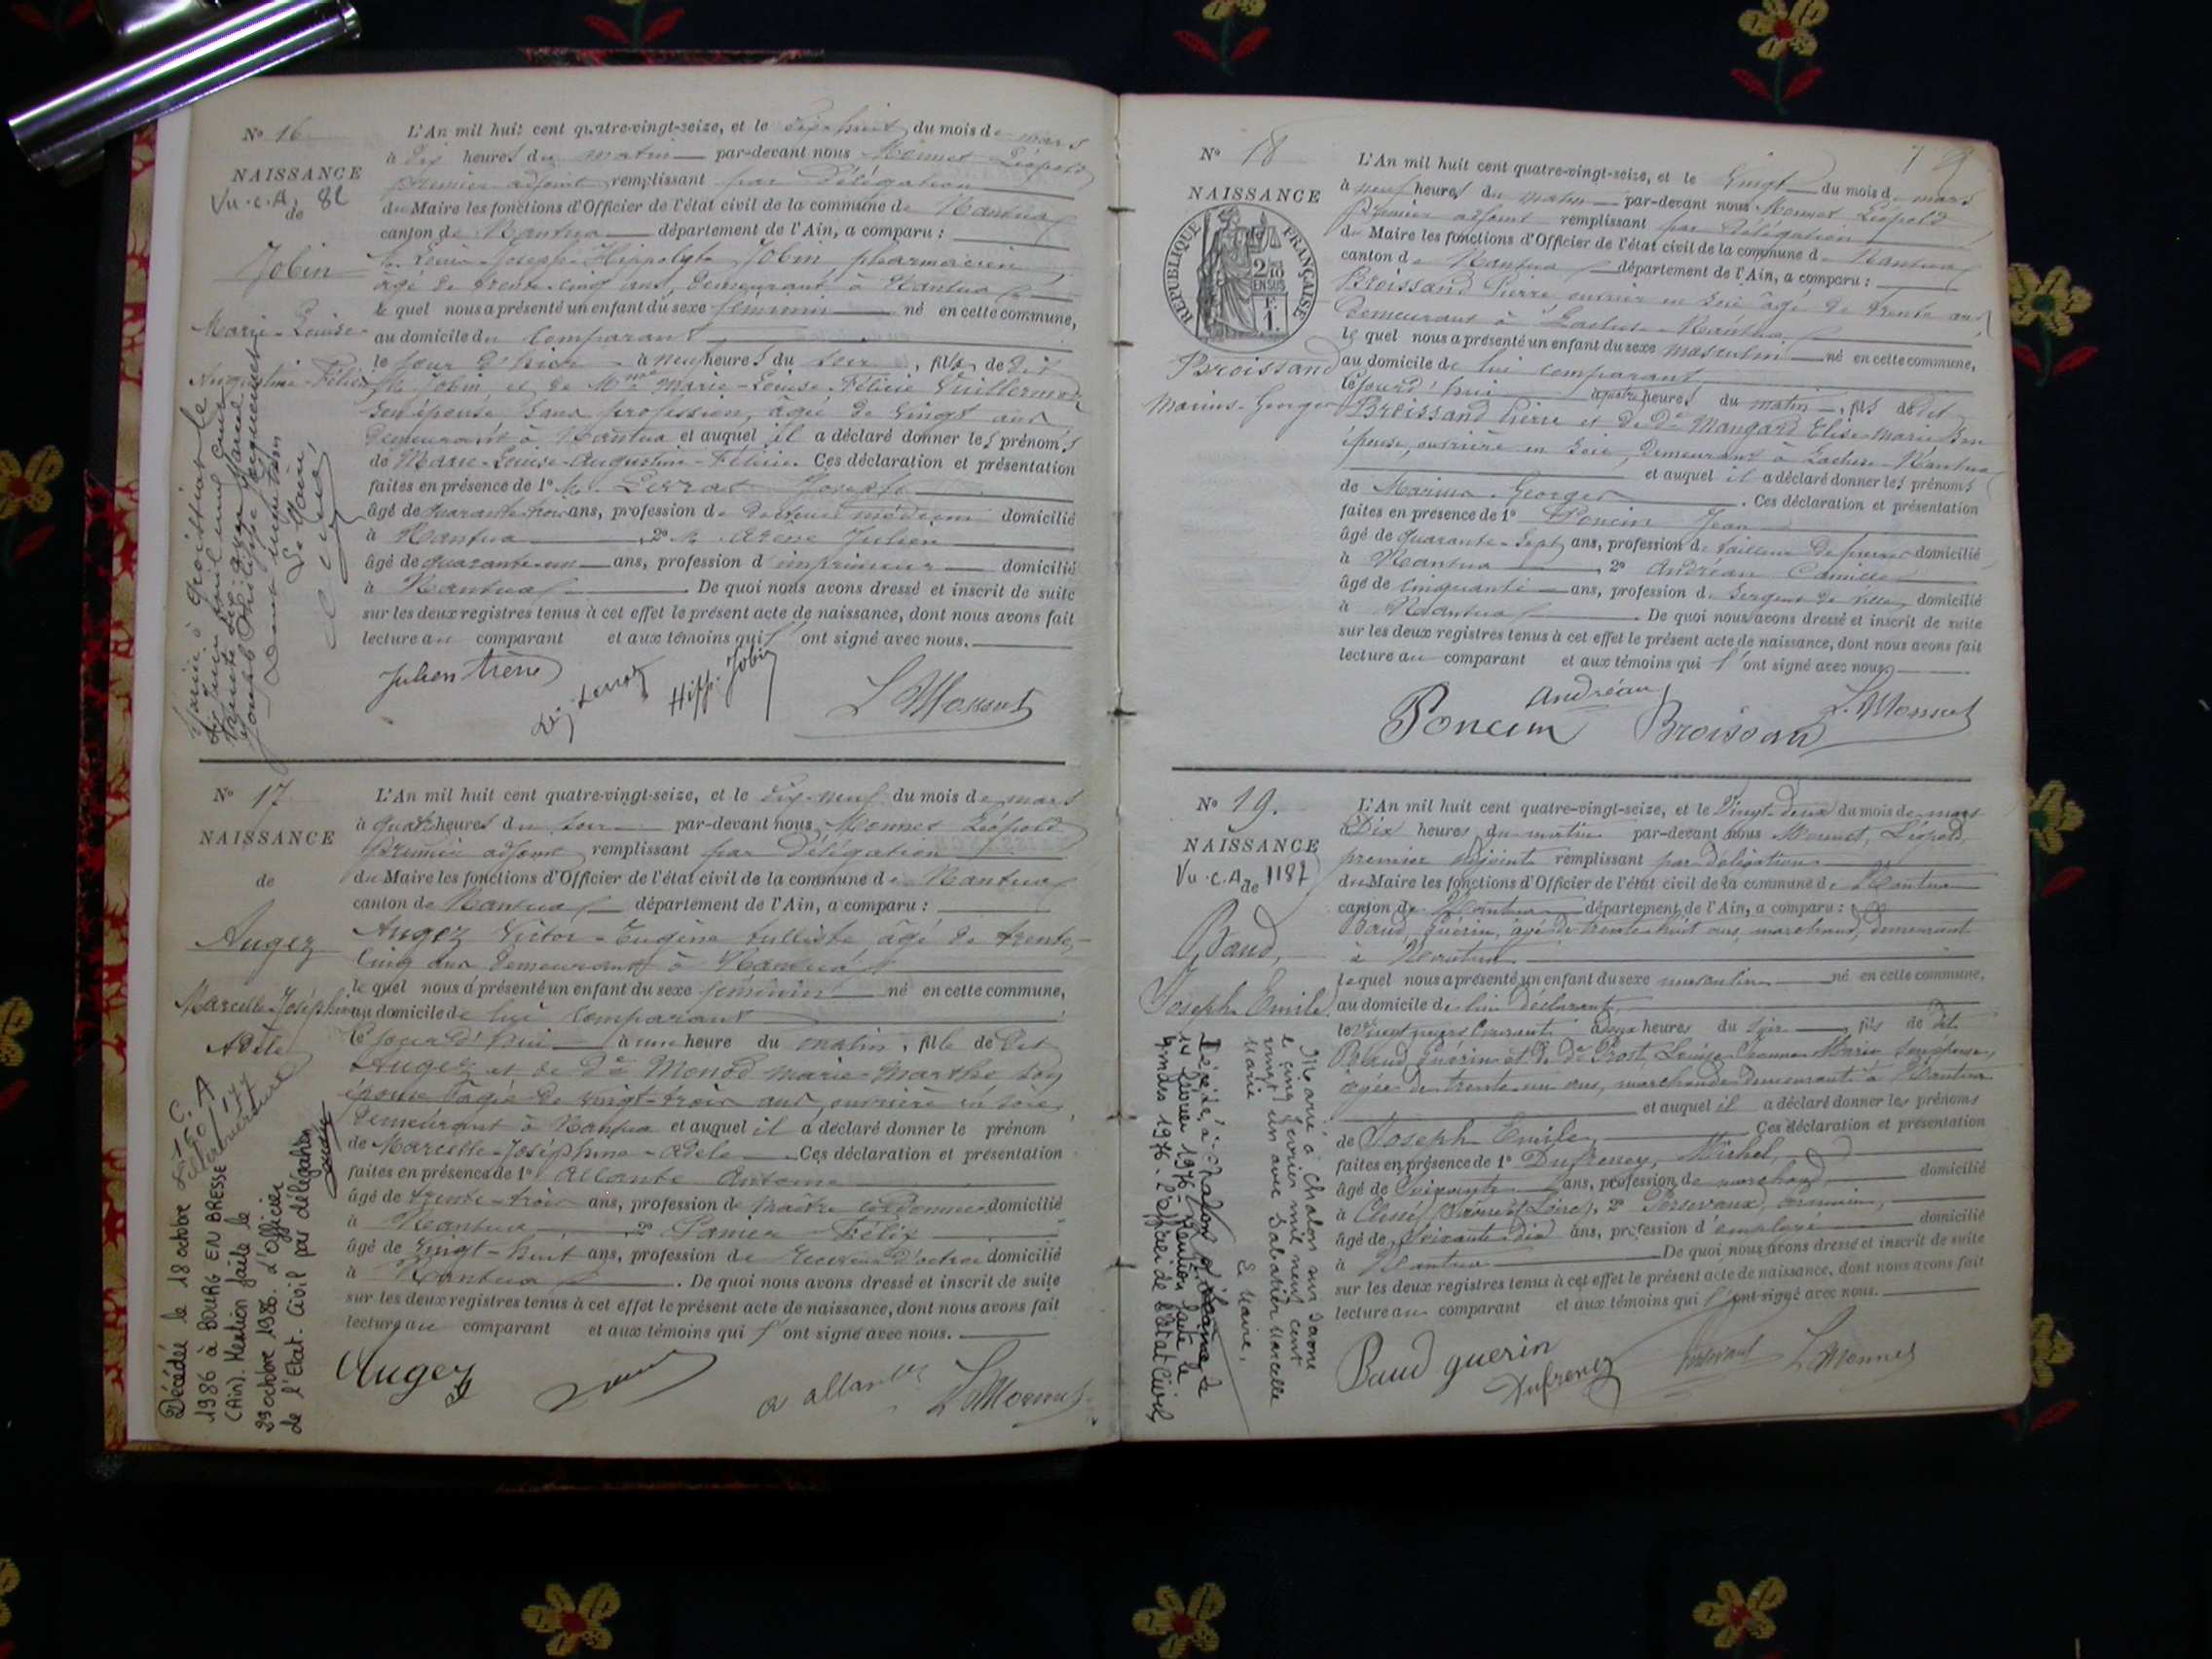 N° 16
NAISSANCE
Vu.c.A. 82
de
Jobin
Marie-Louise-
Augustine-Félicie
L'An mil huit cent quatre-vingt-seize, et le dix-huit du mois de mars
à dix heures du matin par-devant nous Monnet Léopold
premier adjoint remplissant par Délégation
du Maire les fonctions d'Officier de l'état civil de la commune de Nantua
canton de Nantua département de l'Ain, a comparu :
M. Louis-Joseph-Hippolyte Jobin pharmacien
âgé de trente-cinq ans, demeurant à Nantua
le quel nous a présenté un enfant du sexe féminin né en cette commune,
au domicile du comparant
le jour d'hier à neuf heures du soir, fille de dit
M. Jobin et de Mme Marie-Louise-Félicie Vuillermoz
son épouse sans profession, âgée de vingt ans
demeurant à Nantua et auquel il a déclaré donner les prénoms
de Marie-Louise-Augustine-Félicie. Ces déclaration et présentation
faites en présence de 1° M. Levrat Joseph
âgé de quarante-trois ans, profession de docteur médecin domicilié
à Nantua, 2° M. Arène Julien
âgé de quarante-un ans, profession d'imprimeur domicilié
à Nantua. De quoi nous avons dressé et inscrit de suite
sur les deux registres tenus à cet effet le présent acte de naissance, dont nous avons fait
lecture au comparant et aux témoins qui l'ont signé avec nous.
Julien Arène
Hipp. Jobin
L. Monnet
N° 17
NAISSANCE
de
Augez
Marcelle-Joséphine
Adèle
L'An mil huit cent quatre-vingt-seize, et le dix-neuf du mois de mars
à quatre heures du soir par-devant nous Monnet Léopold
Premier adjoint remplissant par Délégation
du Maire les fonctions d'Officier de l'état civil de la commune de Nantua
canton de Nantua département de l'Ain, a comparu :
Augez Victor-Eugène tulliste âgé de trente-
cinq ans demeurant à Nantua
le quel nous a présenté un enfant du sexe féminin né en cette commune,
au domicile de lui comparant
le jourd'hui à une heure du matin, fille de Dit
Augez et de De Monod Marie-Marthe son
épouse âgée de vingt-trois ans, ouvrière en soie
demeurant à Nantua et auquel il a déclaré donner le prénom
de Marcelle-Joséphine-Adèle. Ces déclaration et présentation
faites en présence de 1° Allante Antoine
âgé de trente-trois ans, profession de maître cordonnier domicilié
à Nantua 2° Panier Félix
âgé de vingt-huit ans, profession de Receveur d'octroi domicilié
à Nantua. De quoi nous avons dressé et inscrit de suite
sur les deux registres tenus à cet effet le présent acte de naissance, dont nous avons fait
lecture au comparant et aux témoins qui l'ont signé avec nous.
Augez
L. Monnet
Décédée le 18 octobre
1986 à BOURG EN BRESSE
(Ain). Mention faite le
29 octobre 1986. L'Officier
de l'Etat-Civil par délégation
N° 18
NAISSANCE
REPUBLIQUE FRANÇAISE
2/10 EN SUS
F. 1.
Broissand
Marius-Georges
L'An mil huit cent quatre-vingt-seize, et le vingt du mois de mars
à neuf heures du matin par-devant nous Monnet Léopold
Premier adjoint remplissant par Délégation
du Maire les fonctions d'Officier de l'état civil de la commune de Nantua
canton de Nantua département de l'Ain, a comparu :
Broissand Pierre ouvrier en soie âgé de trente ans
demeurant à Laclues-Nantua
le quel nous a présenté un enfant du sexe masculin né en cette commune,
au domicile de lui comparant
le jourd'hui à quatre heures du matin, fils de Dit
Broissand Pierre et de De Mangard Elise-Marie son
épouse, ouvrière en soie, demeurant à Laclues-Nantua
et auquel il a déclaré donner les prénoms
de Marius-Georges. Ces déclaration et présentation
faites en présence de 1° Poncin Jean
âgé de quarante-sept ans, profession de tailleur de pierres domicilié
à Nantua, 2° Andréan Camille
âgé de cinquante ans, profession de Sergent de Ville domicilié
à Nantua. De quoi nous avons dressé et inscrit de suite
sur les deux registres tenus à cet effet le présent acte de naissance, dont nous avons fait
lecture au comparant et aux témoins qui l'ont signé avec nous.
Andréan
L. Monnet
Poncin Broissand
N° 19.
NAISSANCE
Vu.c.A. 1187
de
Baud,
Joseph Emile
L'An mil huit cent quatre-vingt-seize, et le Vingt-deux du mois de mars
à Dix heures du matin par-devant nous Monnet, Léopold,
premier adjoint remplissant par délégation
du Maire les fonctions d'Officier de l'état civil de la commune de Nantua
canton de Nantua département de l'Ain, a comparu :
Baud, Guérin, âgé de trente-huit ans, marchand, demeurant
à Nantua
lequel nous a présenté un enfant du sexe masculin né en cette commune,
au domicile de lui déclarant
le vingt mars courant à onze heures du soir, fils de dit
Baud Guérin et de De Prost Louise Jeanne Marie son épouse,
âgée de trente-un ans, marchande demeurant à Nantua
et auquel il a déclaré donner les prénoms
de Joseph Emile. Ces déclaration et présentation
faites en présence de 1° Dufreney, Michel,
âgé de soixante ans, profession de marchand domicilié
à Clessé, (Saône et Loire), 2°
âgé de soixante-dix ans, profession d'employé domicilié
à Nantua. De quoi nous avons dressé et inscrit de suite
sur les deux registres tenus à cet effet le présent acte de naissance, dont nous avons fait
lecture au comparant et aux témoins qui l'ont signé avec nous.
Baud guerin
Dufreney
L. Monnet
Marié à Chalon sur Saone
le cinq Février mil neuf cent
vingt un avec Sabatier Marcelle
Marie
Le Maire,
Décédé à Chalon s/ Saône le
14 Février 1976. Mention faite le
L'officier de l'état civil,